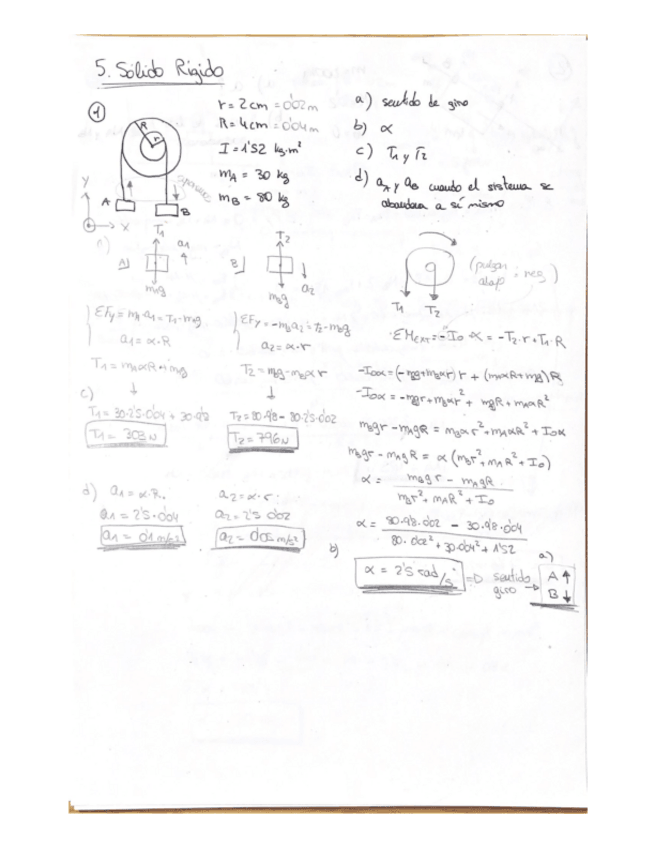 5. Sólido Rígido
1
R
r
A
B
Y
X
r = 2 cm = 0'02 m
R = 4 cm = 0'04 m
I = 1'52 kg·m²
mA = 30 kg
mB = 80 kg
a) sentido de giro
b) α
c) T1 y T2
d) aA y aB cuando el sistema se
abandona a sí mismo
T1
a1
A
mAg
T2
B
a2
mBg
T1 T2
(pulgar
; neg)
ΣFy = mA·a1 = T1 - mAg
a1 = α·R
T1 = mAαR + mAg
ΣFy = -mBa2 = T2 - mBg
a2 = α·r
T2 = mBg - mBαr
ΣMext = -Io·α = -T2·r + T1·R
-Ioα = (-mBg + mBαr)r + (mAαR + mAg)R
-Ioα = -mBgr + mBαr² + mAgR + mAαR²
mBgr - mAgR = mBαr² + mAαR² + Ioα
mBgr - mAgR = α(mBr² + mAR² + Io)
α = mBgr - mAgR / mBr² + mAR² + Io
α = 80·9'8·0'02 - 30·9'8·0'04 / 80·0'02² + 30·0'04² + 1'52
c)
T1 = 30·2'5·0'04 + 30·9'8
T1 = 303 N
T2 = 80·9'8 - 80·2'5·0'02
T2 = 796 N
d) a1 = α·R
a1 = 2'5·0'04
a1 = 0'1 m/s²
a2 = α·r
a2 = 2'5·0'02
a2 = 0'05 m/s²
b)
α = 2'5 rad/s
=> sentido giro →
a)
A ↑
B ↓